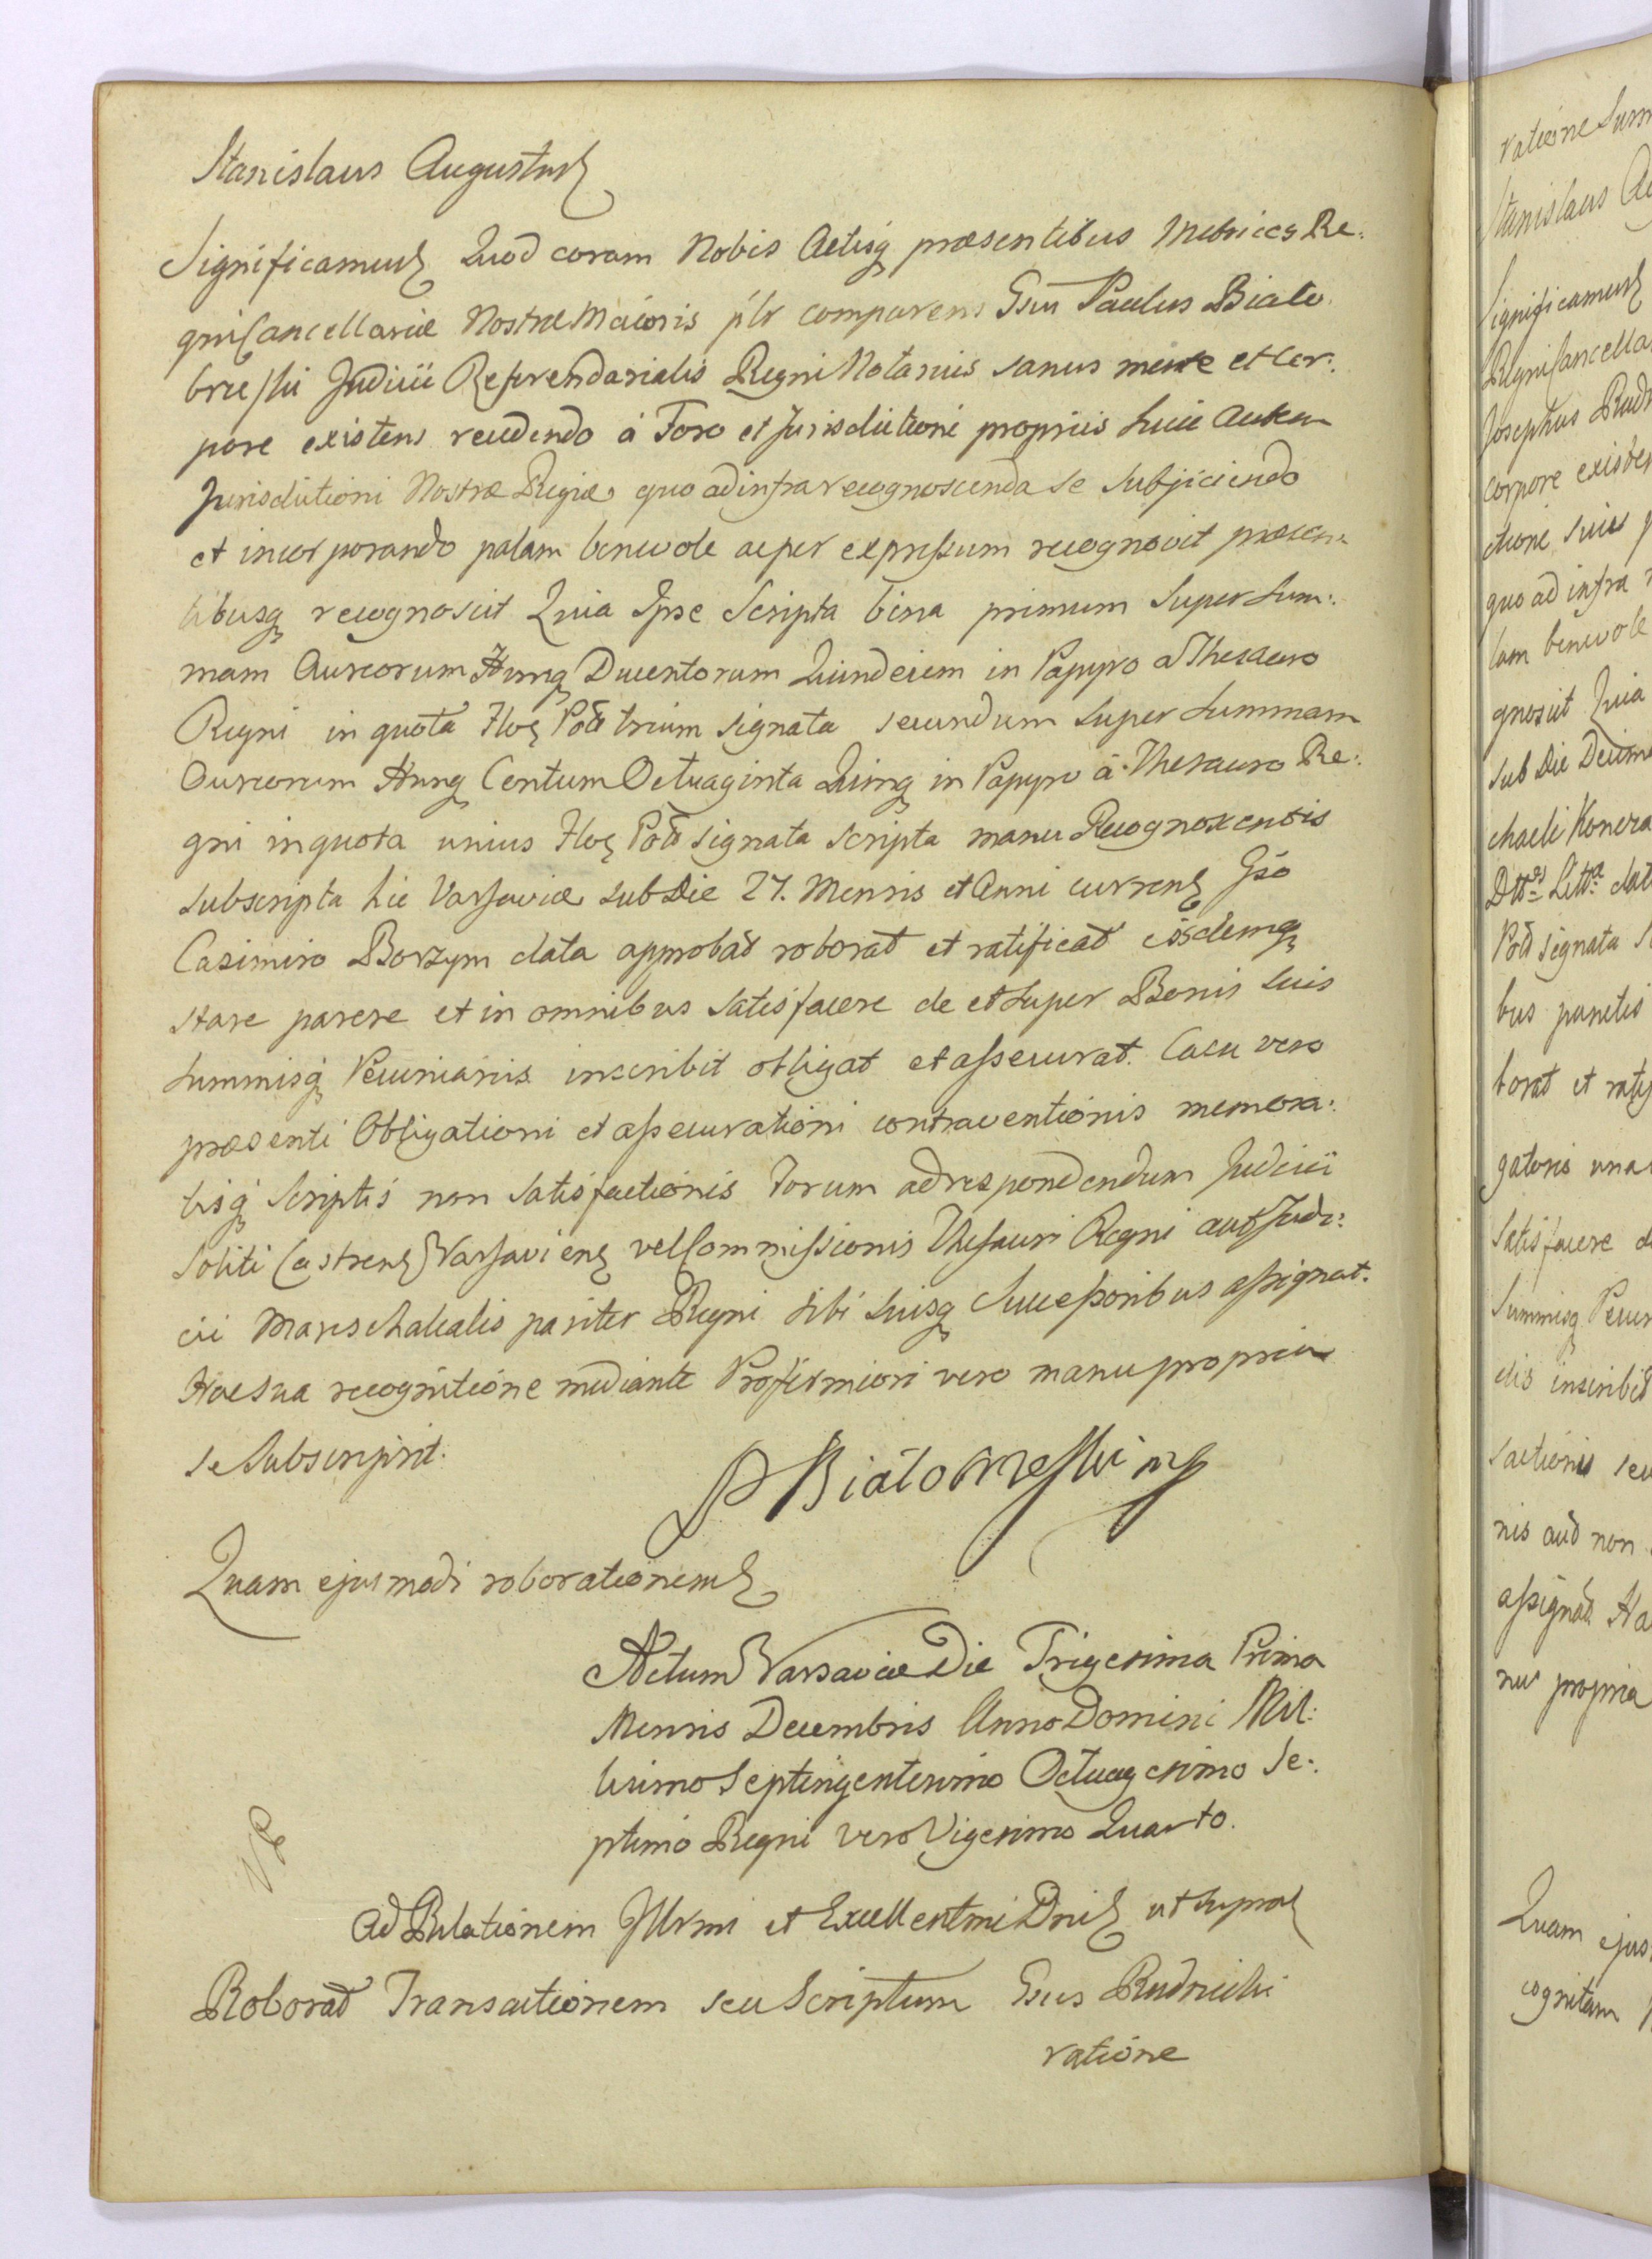 Stanislaus Augustus
Significamus Quod coram Nobis Actisq praesentibus Metrices Re:
gni Cancellariae Nostrae Maioris plr comparens Gsus Paulus Biało
brzeski Judicii Referendarialis Regni Notarius sanus mente et Cor:
pore existens recedendo à Foro et Jurisdictioni propriis huic autem
Jurisdictioni Nostrae Regiae quo ad infra recognoscenda se subjiciendo
et incorporando palam benevole ac per expressum recognovit praesen:
tibusq recognoscit Quia Ipse Scripta bina primum super Sum:
mam Aureorum Hung Ducentorum Quindecim in Papyro a Thesauro
Regni in quota Flor Pol trium signata secundum super Summam
Aureorum Hung Centum Octuaginta Quinq in Papyro à Thesauro Re:
gni in quota unius Flor Pol signata scripta manu Recognoscentis
subscripta hic Varsaviae sub Die 27. Mensis et Anni curren Gso
Casimiro Borzym data approbat roborat et ratificat iisdemq
stare parere et in omnibus satisfacere de et super Bonis suis
Summisq Pecuniariis inscribit obligat et assecurat. Casu vero
praesenti Obligationi et assecurationi contraventionis memora:
tisq Scriptis non satisfactionis Forum ad respondendum Judicii
soliti Castren Varsavien vel Commissionis Thesauri Regni aut Judi:
cii Mareschalcalis pariter Regni sibi suisq Successoribus assignat.
Hac sua recognitione mediante Pro firmiori vero manu propria
se subscripsit.
P Białobrzeski mp
Quam ejusmodi roborationem
Actum Varsaviae Die Trigesima Prima
Mensis Decembris Anno Domini Mil:
lesimo Septingentesimo Octuagesimo Se:
ptimo Regni vero Vigesimo Quarto.
Ad Relationem Illrmi et Excellentmi Dni ut supra
Roborat Transactionem seu Scriptum Gsus Rudnicki
ratione
ratione Sum
Stanislaus Au
Significamus
Regni Cancella
Josephus Rudn
corpore existen
ctione suis p
quo ad infra r
lam benevole
gnoscit Quia
sub Die Decima
chaeli Konera
Litt dat
Pol signata S
bus punctis
borat et ratif
gatoris una
satisfacere d
Summisq Pecun
ctis inscribit
sactionis seu
nis aut non
assignat Ha
nu propria
Quam ejus
cognitam